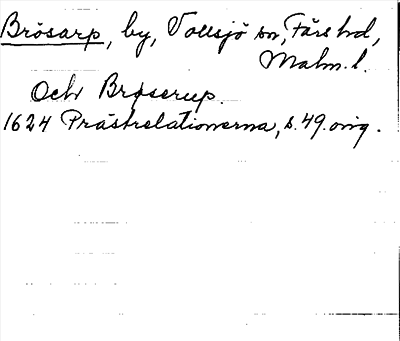 Brösarp, by, Vollsjö sn, Färs hd,
Malm. l.
Och Brøserup.
1624 Prästrelationerna, s. 49. orig.